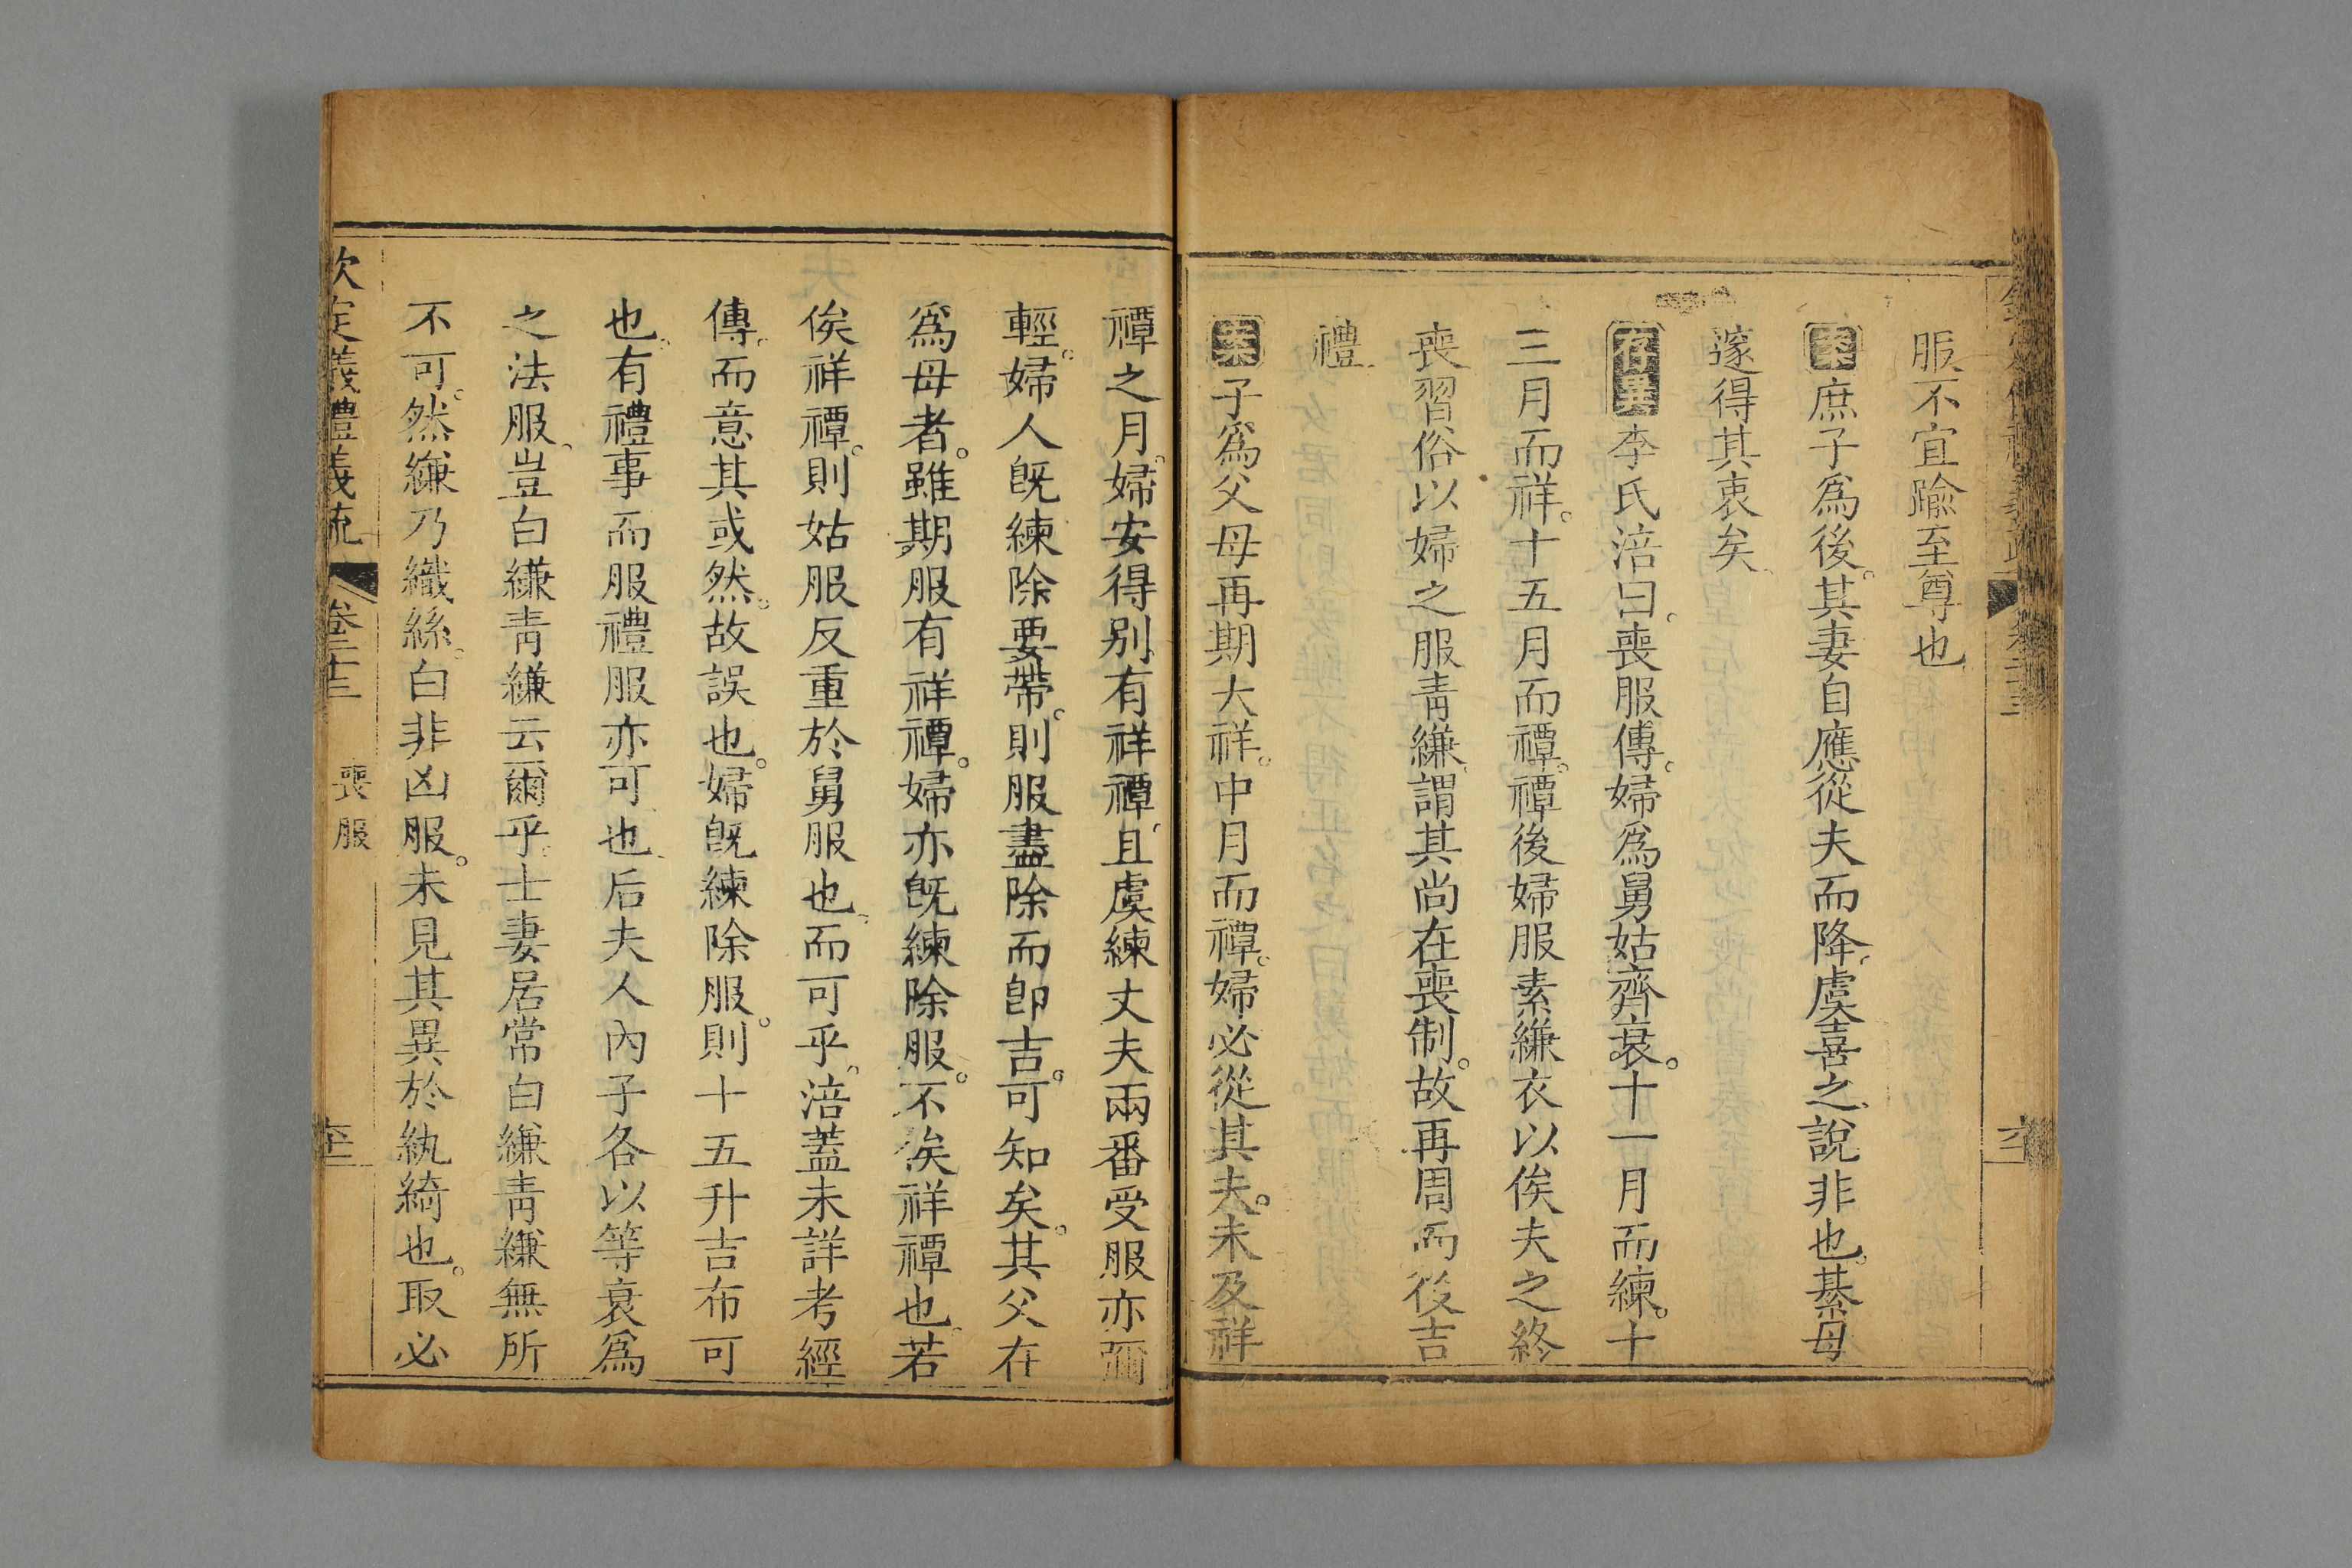 服不宜踰至尊也
案庶子爲後。其妻自應從夫而降。虞喜之說非也。綦母
邃得其衷矣、
存異李氏涪曰。喪服傳。婦爲舅姑齊衰。十一月而練。十
三月而祥。十五月而禫。禫後婦服素縑衣以俟夫之終
喪習俗以婦之服靑縑、謂其尚在喪制。故再周而後吉
禮、
案子爲父母再期大祥。中月而禫。婦必從其夫。未及祥
禫之月。婦安得别有祥禫、且虞練丈夫兩番受服亦彌
輕。婦人旣練除要帶。則服盡除而卽吉。可知矣。其父在
爲母者。雖期服有祥禫。婦亦旣練除服。不俟祥禫也。若
俟祥禫。則姑服反重於舅服也、而可乎。涪蓋未詳考經
傳。而意其或然。故誤也。婦旣練除服。則十五升吉布可
也。有禮事而服禮服亦可也、后夫人內子各以等衰爲
之法服、豈白縑靑縑云爾乎。士妻居常白縑靑縑無所
不可。然縑乃織絲。白非凶服。未見其異於紈綺也。取必
欽定義禮義疏
卷二十三
喪服